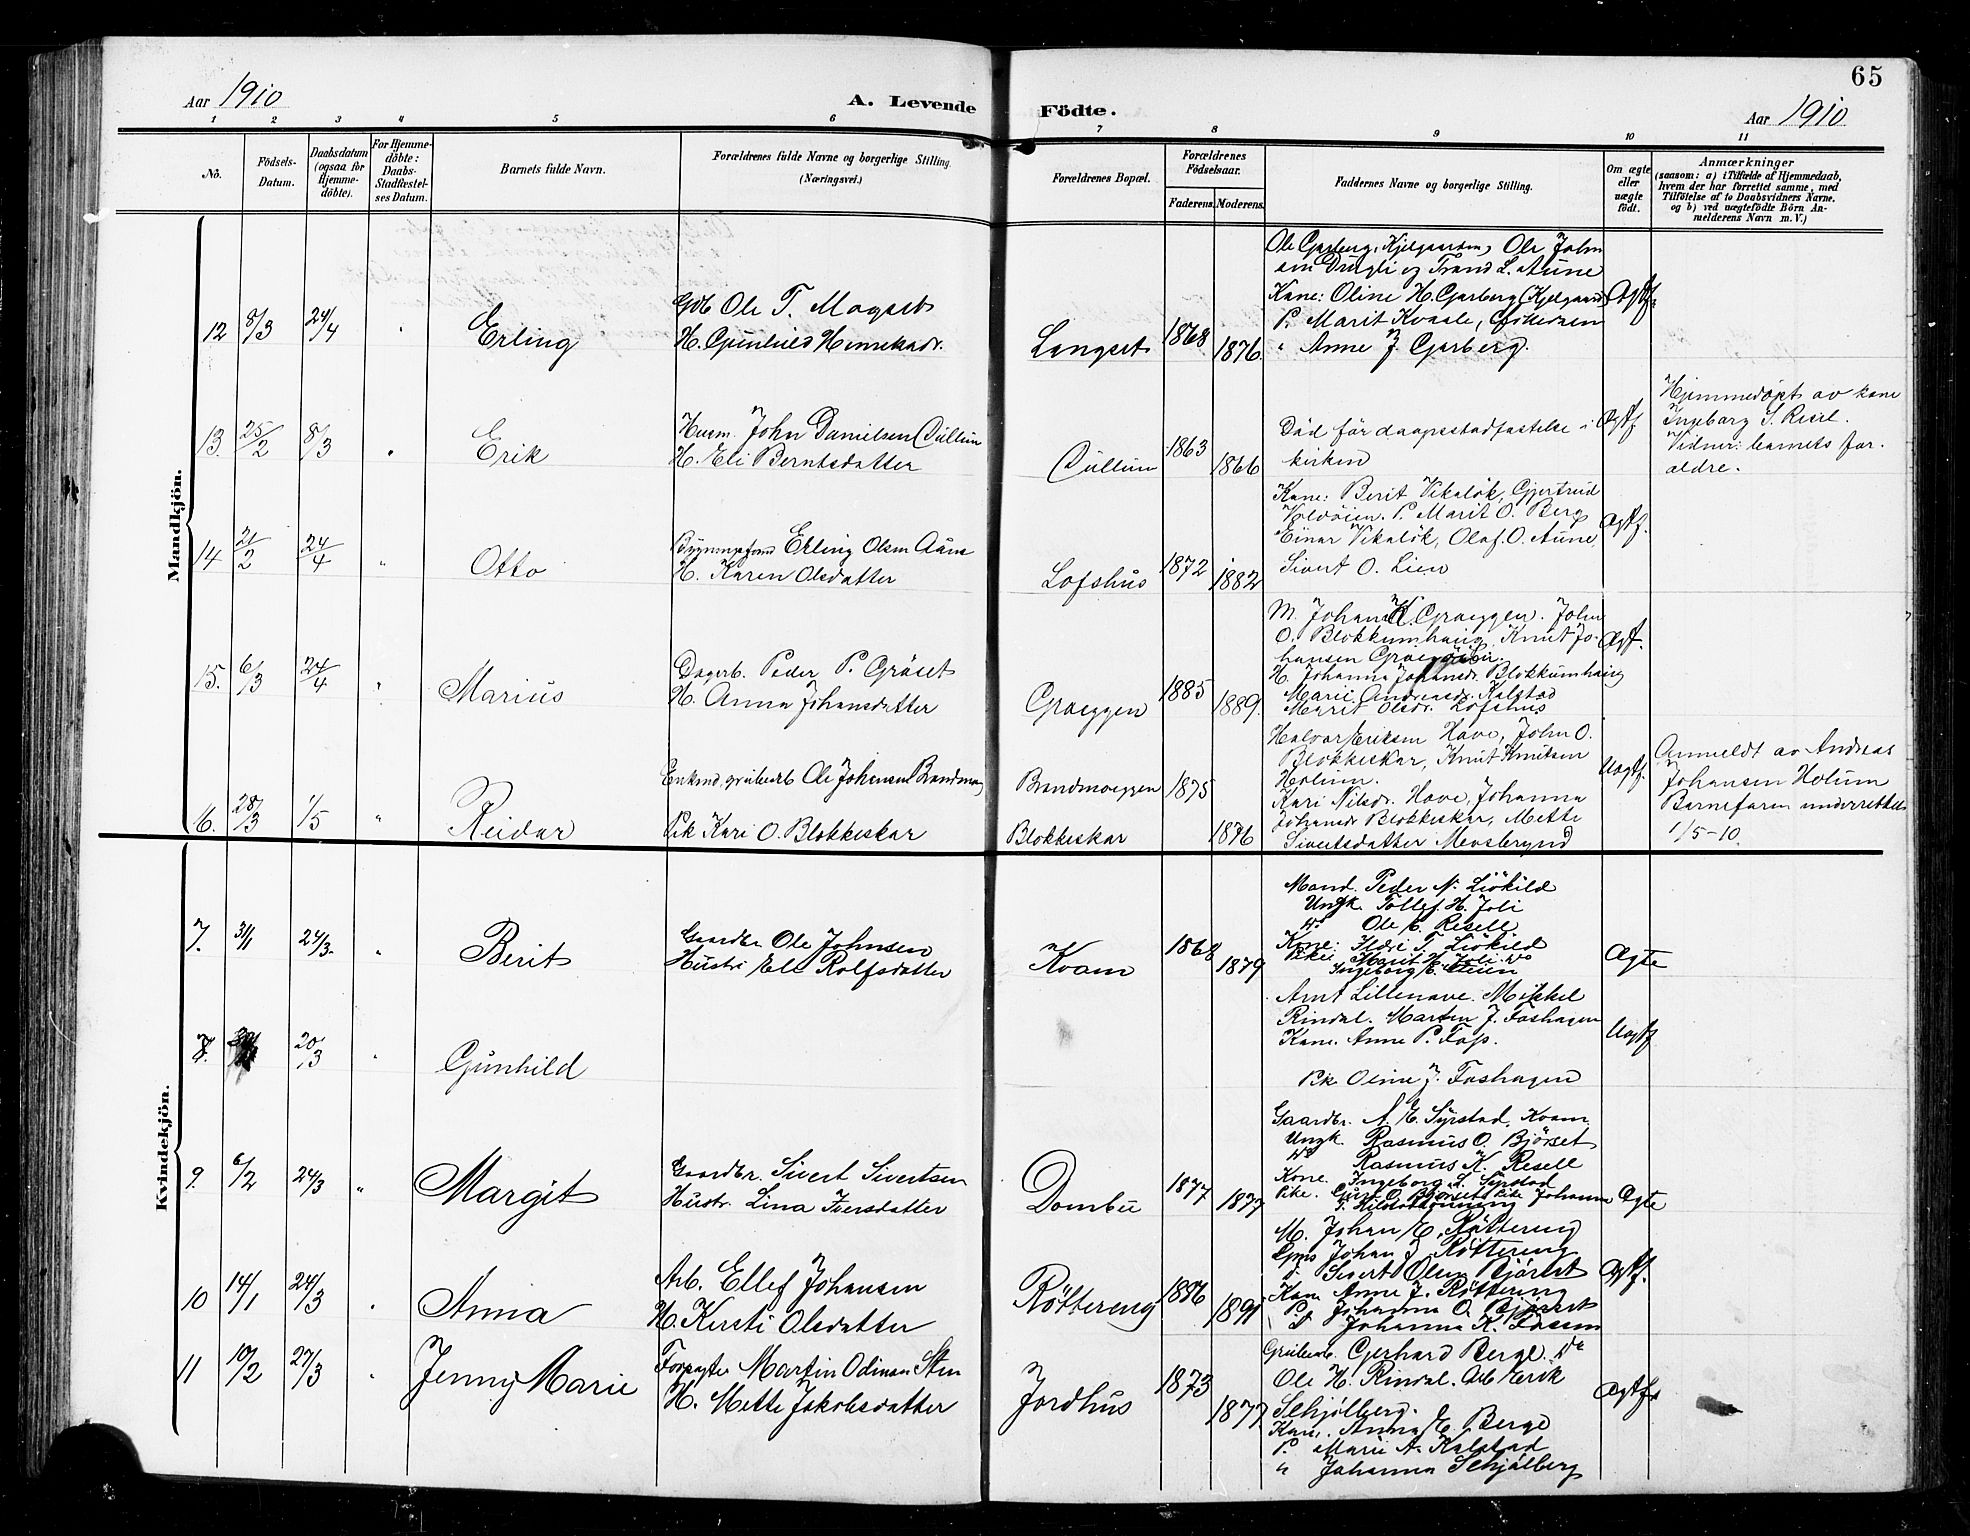 65
Aar 1910
A. Levende
Födte.
Aar 1910
1 2 3 4 5 6 7 8 9 10 11
No.
Födsels-
Datum.
Daabsdatum
(ogsaa for
Hjemme-
döbte).
For Hjemme-
döbte:
Daabs-
Stadfæstel-
ses Datum.
Barnets fulde Navn.
Forældrenes fulde Navne og borgerlige Stilling.
(Næringsvei.)
Forældrenes Bopæl.
Forældrenes
Födselsaar.
Faderens. Moderens.
Faddernes Navne og borgerlige Stilling.
Om ægte
eller
uægte
födt.
Anmærkninger
(saasom: a) i Tilfælde af Hjemmedaab,
hvem der har forrettet samme, med
Tilföielse af to Daabsvidners Navne,
og b) ved uægtefödte Börn An-
melderens Navn m. V.)
Mandkjön.
12 8/3 24/4 "
Erling
Ole T. Magset
H. Gunhild
Langset
1868
1876.
Ole Garberg, Ole John
og Trond L. Aune
Kone: Oline H. Garberg
P. Marit Kvaale,
" Anne J. Garberg.
Ægtf.
13. 25/2 8/3 "
Erik
Husm. John Danielsen Cüllum
H. Eli Berntsdatter
Cüllum
1863
1866
Död för daapsstadfæstelse i
kirken
Ægtf
Hjemmedöpt av kone
Ingeborg S. Resel.
Vidner: barnets for-
ældre.
14 21/2 24/4 "
Otto
Erling Olsen Aune
H. Karen Olsdatter
Lofshus
1872
1882
Kone: Berit Vikalök, Gjertrud
P. Marit O. Berg
Einar Vikalök, Olaf. O. Aune,
Sivert O. Lien
Ægtf.
15. 6/3 24/4 "
Marius
Dagarb. Peder P. Gröset
H. Anna Johansdatter
Graeggen
1885
1889.
M. Johan K. Graeggen. John
O. Blokkumhaug, Knut Jo-
hansen
H. Johanna Johansdr. Blokkumhaug
Marie Andreasdr. Kalstad
Marit Olsdr. Lofshus
Ægtf.
16. 28/3 1/5 "
Reidar
Enkmd grubearb Ole Johansen Brandmo
Pik Kari O. Blokkeskar
Brandmoeggen
Blokkeskar
1875
1876
Halvor Eriksen Hove, John O.
Blokkeskar, Knut Knutsen
Holum.
Kari Nilsdr. Hove, Johanna
Johansdr Blokkeskar, Mette
Sivertsdatter
Uægtf.
Anmeldt av Andreas
Johansen Holum
Barnefaren underrettet
1/5-10.
Kvindekjön.
7. 31/1 24/3 "
Berit
Gaardbr Ole Johnsen
Hustr Eli Rolfsdatter
Kvam
1868
1879
Mand. Peder N. Liökild
Ungk. Tollef. H. Joli
do Ole E. Resell
Kone: T. Liökild
Pike: Marit H. Joli. do
Ingeborg E.
Ægte
8. 20/3 "
Gunhild
Arnt Lillenave. Mikkel
Rindal. Morten J. Foshagen
Kone. Anne P.
Pik Oline J. Foshagen
Uægtf
9. 6/2 24/3 "
Margit
Gaardbr. Sivert Sivertsen
Hustr. Lina Iversdatter
Dombu
1877
1877
Gaardbr. A. E. Syrstad, Kvam
Ungk. Rasmus O. Björset
do Rasmus K. Resell
Kone. Ingeborg S. Syrstad
Pike. O. Björset Pike Johanna
Ægte
10 14/1 24/3 "
Anna
Arb. Ellef Johansen
H. Kersti Olsdatter
Röttereng
1886
1891
M. Johan E. Röttereng
Johan J. Röttereng
Sivert Olsen Björset
Kone Anne J. Röttereng
P. Johanna O. Björset
Johanna K.
Ægtf.
11 10/2 27/3 "
Jenny Marie
Forpagter Martin Odinsen Sten
H. Mette Jakobsdatter
Jordhus
1873
1877
Grubearb. Gerhard Berge. do
Ole H. Rindal. Arb Erik
Schjölberg.
Kone. Anna E. Berge
P. Marie A. Kalstad
" Johanna Schjölberg
Ægtf